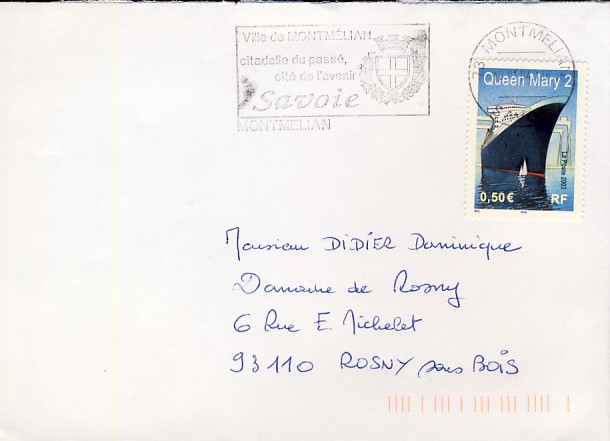 Ville de MONTMÉLIAN
citadelle du passé,
cité de l'avenir
Savoie
MONTMELIAN
73 MONTMELIAN
Queen Mary 2
La Poste 2003
0,50€ RF
Monsieur DIDIER Dominique
Domaine de Rosny
6 Rue E. Michelet
93110 ROSNY sous BOIS